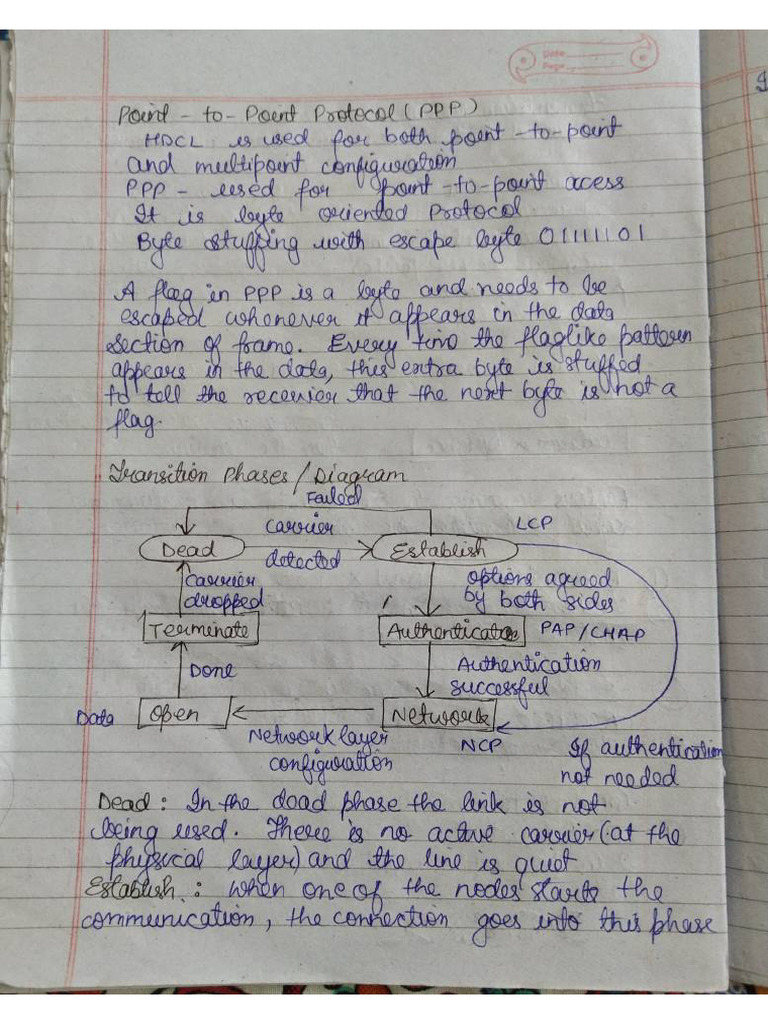 Date
Page
Point - to - Point Protocol (PPP)
HDCL is used for both point-to-point
and multipoint configuration
PPP - used for point-to-point acess
It is byte oriented Protocol
Byte stuffing with escape byte 01111101
A flag in PPP is a byte and needs to be
escaped whenever it appears in the data
section of frame. Every time the flaglike pattern
appears in the data, this extra byte is stuffed
to tell the recevier that the next byte is not a
flag.
Transition Phases / Diagram
Failed
Dead
carrier
detected
Establish
LCP
carrier
dropped
options agreed
by both sides
Terminate
Authenticate
PAP/CHAP
Done
Authentication
successful
Data
Open
Network
Network layer
configuration
NCP
If authentication
not needed
Dead : In the dead phase the link is not
being used. There is no active carrier (at the
physical layer) and the line is quiet
Establish : when one of the nodes starts the
communication, the connection goes into this phase